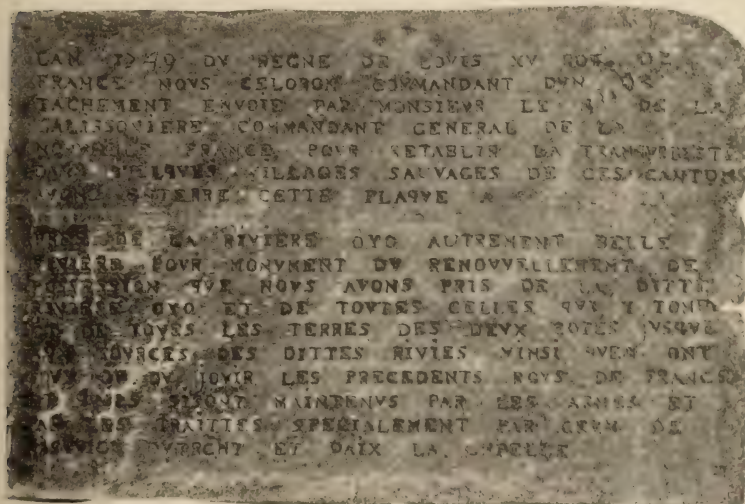 LAN 1749 DV REGNE DE LOVIS XV ROY DE
FRANCE NOVS CELORON COMMANDANT DVN DE
TACHEMENT ENVOIE PAR MONSIEVR LE Mis DE LA
GALISSONIERE COMMANDANT GENERAL DE LA
NOUVELLE FRANCE POVR RETABLIR LA TRANQVILLITE
DANS QVELQVES VILLAGES SAUVAGES DE CES CANTONS
AVONS ENTERRE CETTE PLAQVE A
PRES DE LA RIVIERE OYO AUTREMENT BELLE
RIVIERE POVR MONVMENT DV RENOVVELLEMENT DE
POSSESSION QVE NOVS AVONS PRIS DE LA DITTE
RIVIERE OYO ET DE TOVTES CELLES QVI Y TOMB
ET DE TOVES LES TERRES DES DEVX COTES JVSQVE
AVX SOVRCES DES DITTES RIVIES VINSI QVEN ONT
JOVY OV DV JOVIR LES PRECEDENTS ROYS DE FRANCE
ET QVILS SISONT MAINTENVS PAR LES ARMES ET
PAR LES TRAITTES SPECIALEMENT PAR CEVX DE
RISVVICK DVTRCHT ET DAIX LA CHPELLE